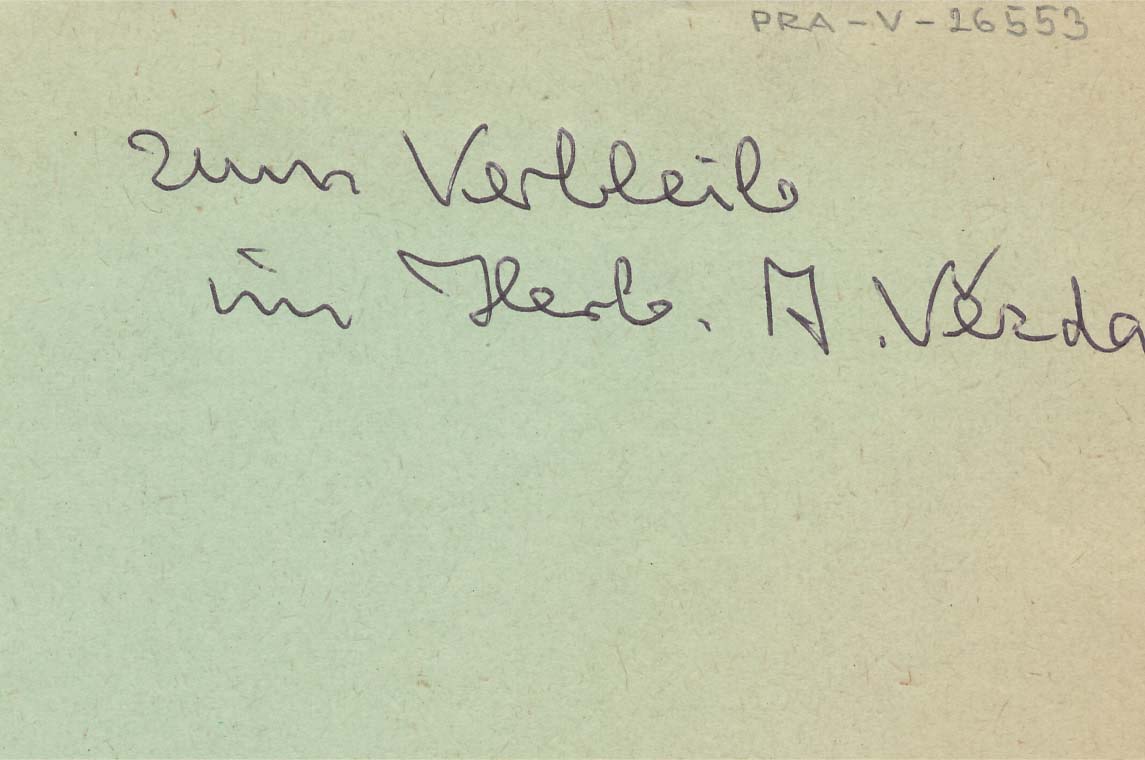 PRA-V-26553
zum Verbleib
im Herb. A. Vézda